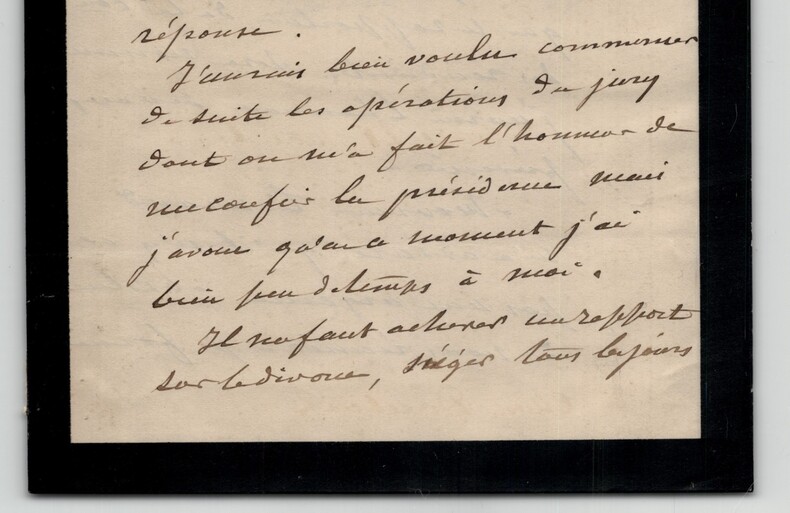 réponse.
J'aurais bien voulu commencer
de suite les opérations du jury
dont on m'a fait l'honneur de
me confier la présidence mais
j'avoue qu'en ce moment j'ai
bien peu de temps à moi.
Il me faut achever un rapport
sur le divorce, siéger tous les jours